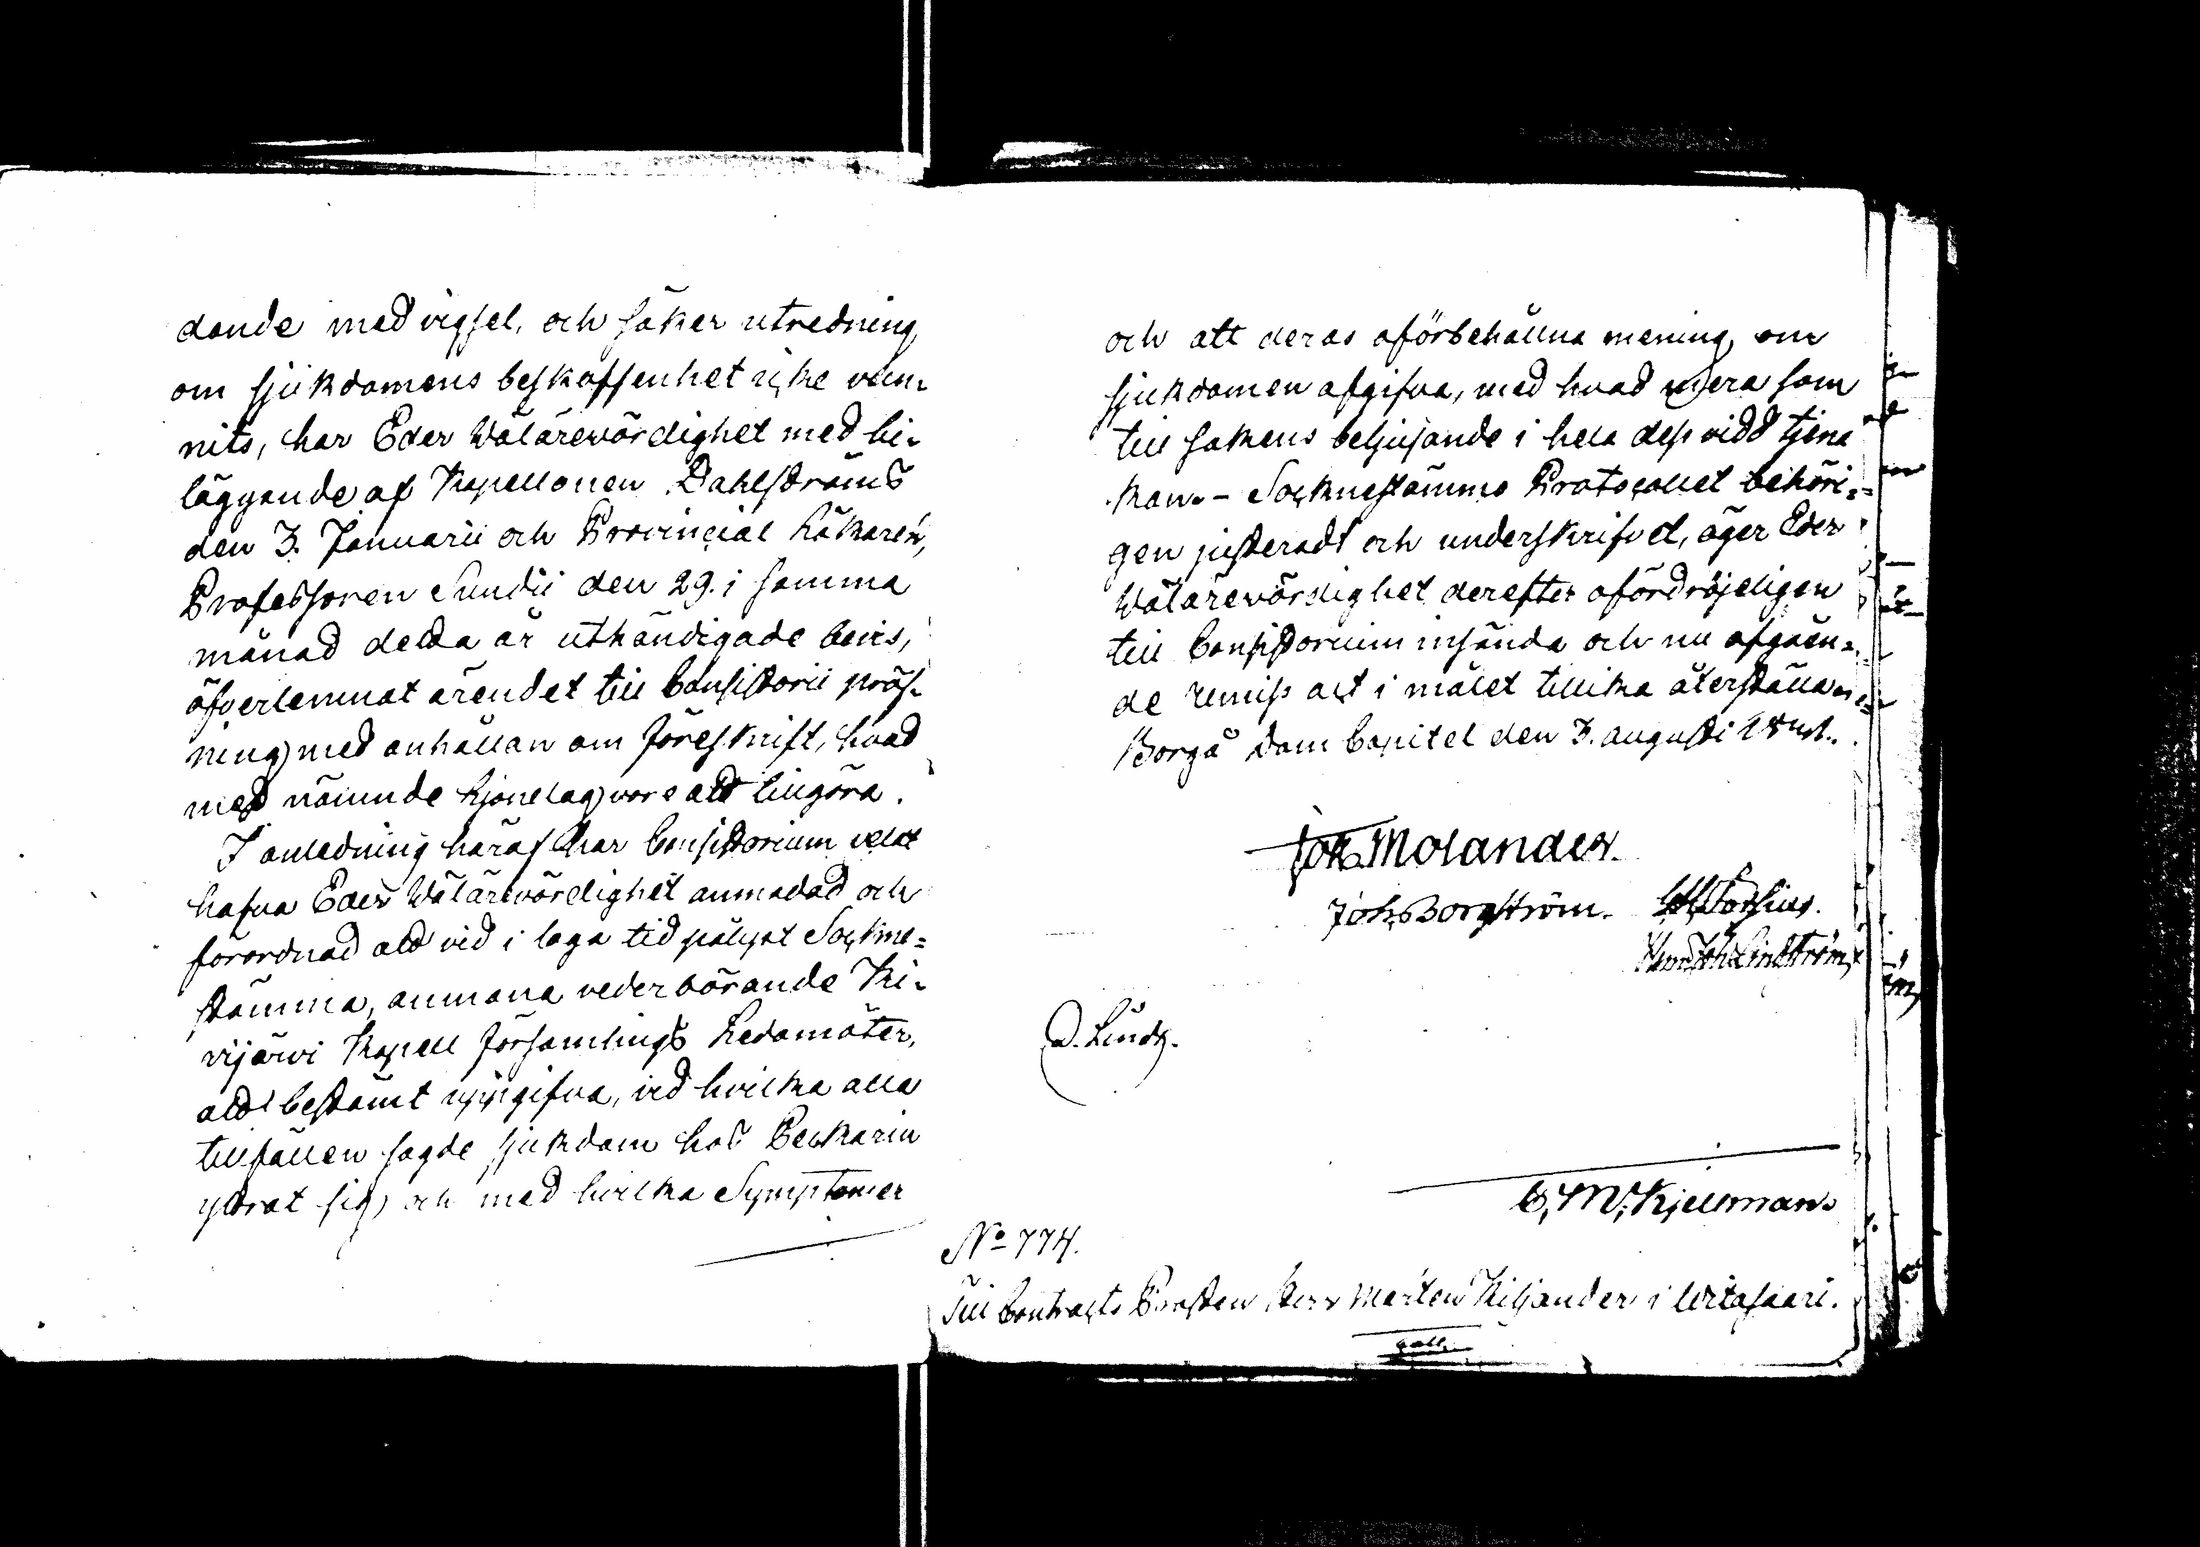 dande med vigsel, och säker utredning
om sjukdomens beskaffenhet icke vun-
nits, har Eder Wälärevördighet med bi-
läggande af Kapellonen Dahlströms
den 3. Januarii och Provincial Läkaren,
Professoren Sundii den 29. i samma
månad detta år uthändigade bevis,
öfverlemnat ärendet till Consistorii pröf-
ning, med anhållan om föreskrift, hvad
med nämnde hjonelag vore att tillgöra.
I anledning häraf har Consistorium velat
hafva Eder Wälärevördighet anmodad och
förordnad att vid i laga tid pålyst Sockne=
stämma, anmana vederbörande Ki-
vijärvi Kapell Församlings Ledamöter,
att bestämt uppgifva, vid hvilka alla
tillfällen sagde sjukdom hos Beckarin
yttrat sig, och med hvilka Symptomer
och att deras oförbehållna mening, om
sjukdomen afgifva, med hvad mera som
till sakens beljusande i hela dess vidd tjena
kan. - Sockenstämmo Protocollet behöri=
gen justeradt och underskrifvet, äger Eder
Wälärevördighet derefter ofördröjeligen
till Consistorium insända och nu afgåen=
de remiss act i målet tillika återställa.
Borgå Dom Capitel den 3. augusti
Joh. Molander.
Joh. Borgström.
Joh. Lindström
C. M. Kjellman.
No 774.
Till Contracts Prosten Herr Mårten Kiljander i Witasaari.